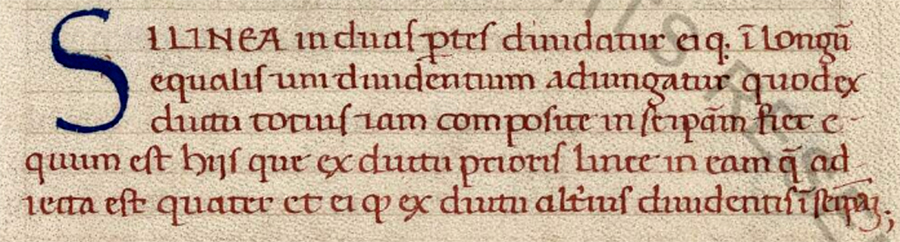 SI LINEA in duas ptes diuidatur eiq. ī longū
equalis uni diuidentium adiungatur quod ex
ductu totius iam composite in se ipām fiet e
quum est hijs que ex ductu prioris linee in eam q̄ ad
iecta est quater et ei qp ex ductu alt'ius diuidentis ī se ipā;